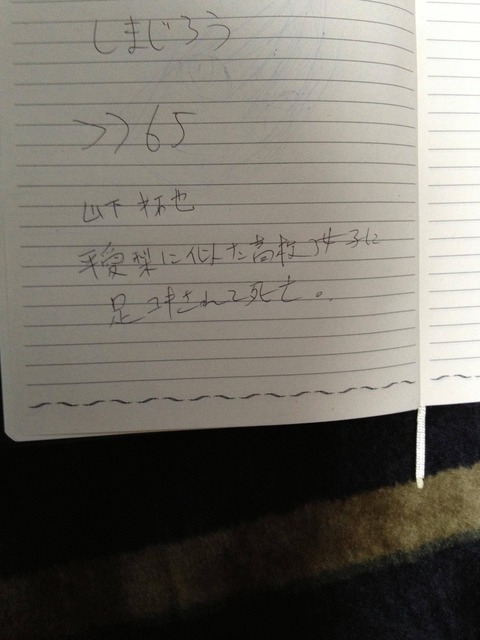 しまじろう
>>65
山下 杯也
平愛梨に似た高校女子に
足コキされて死亡。